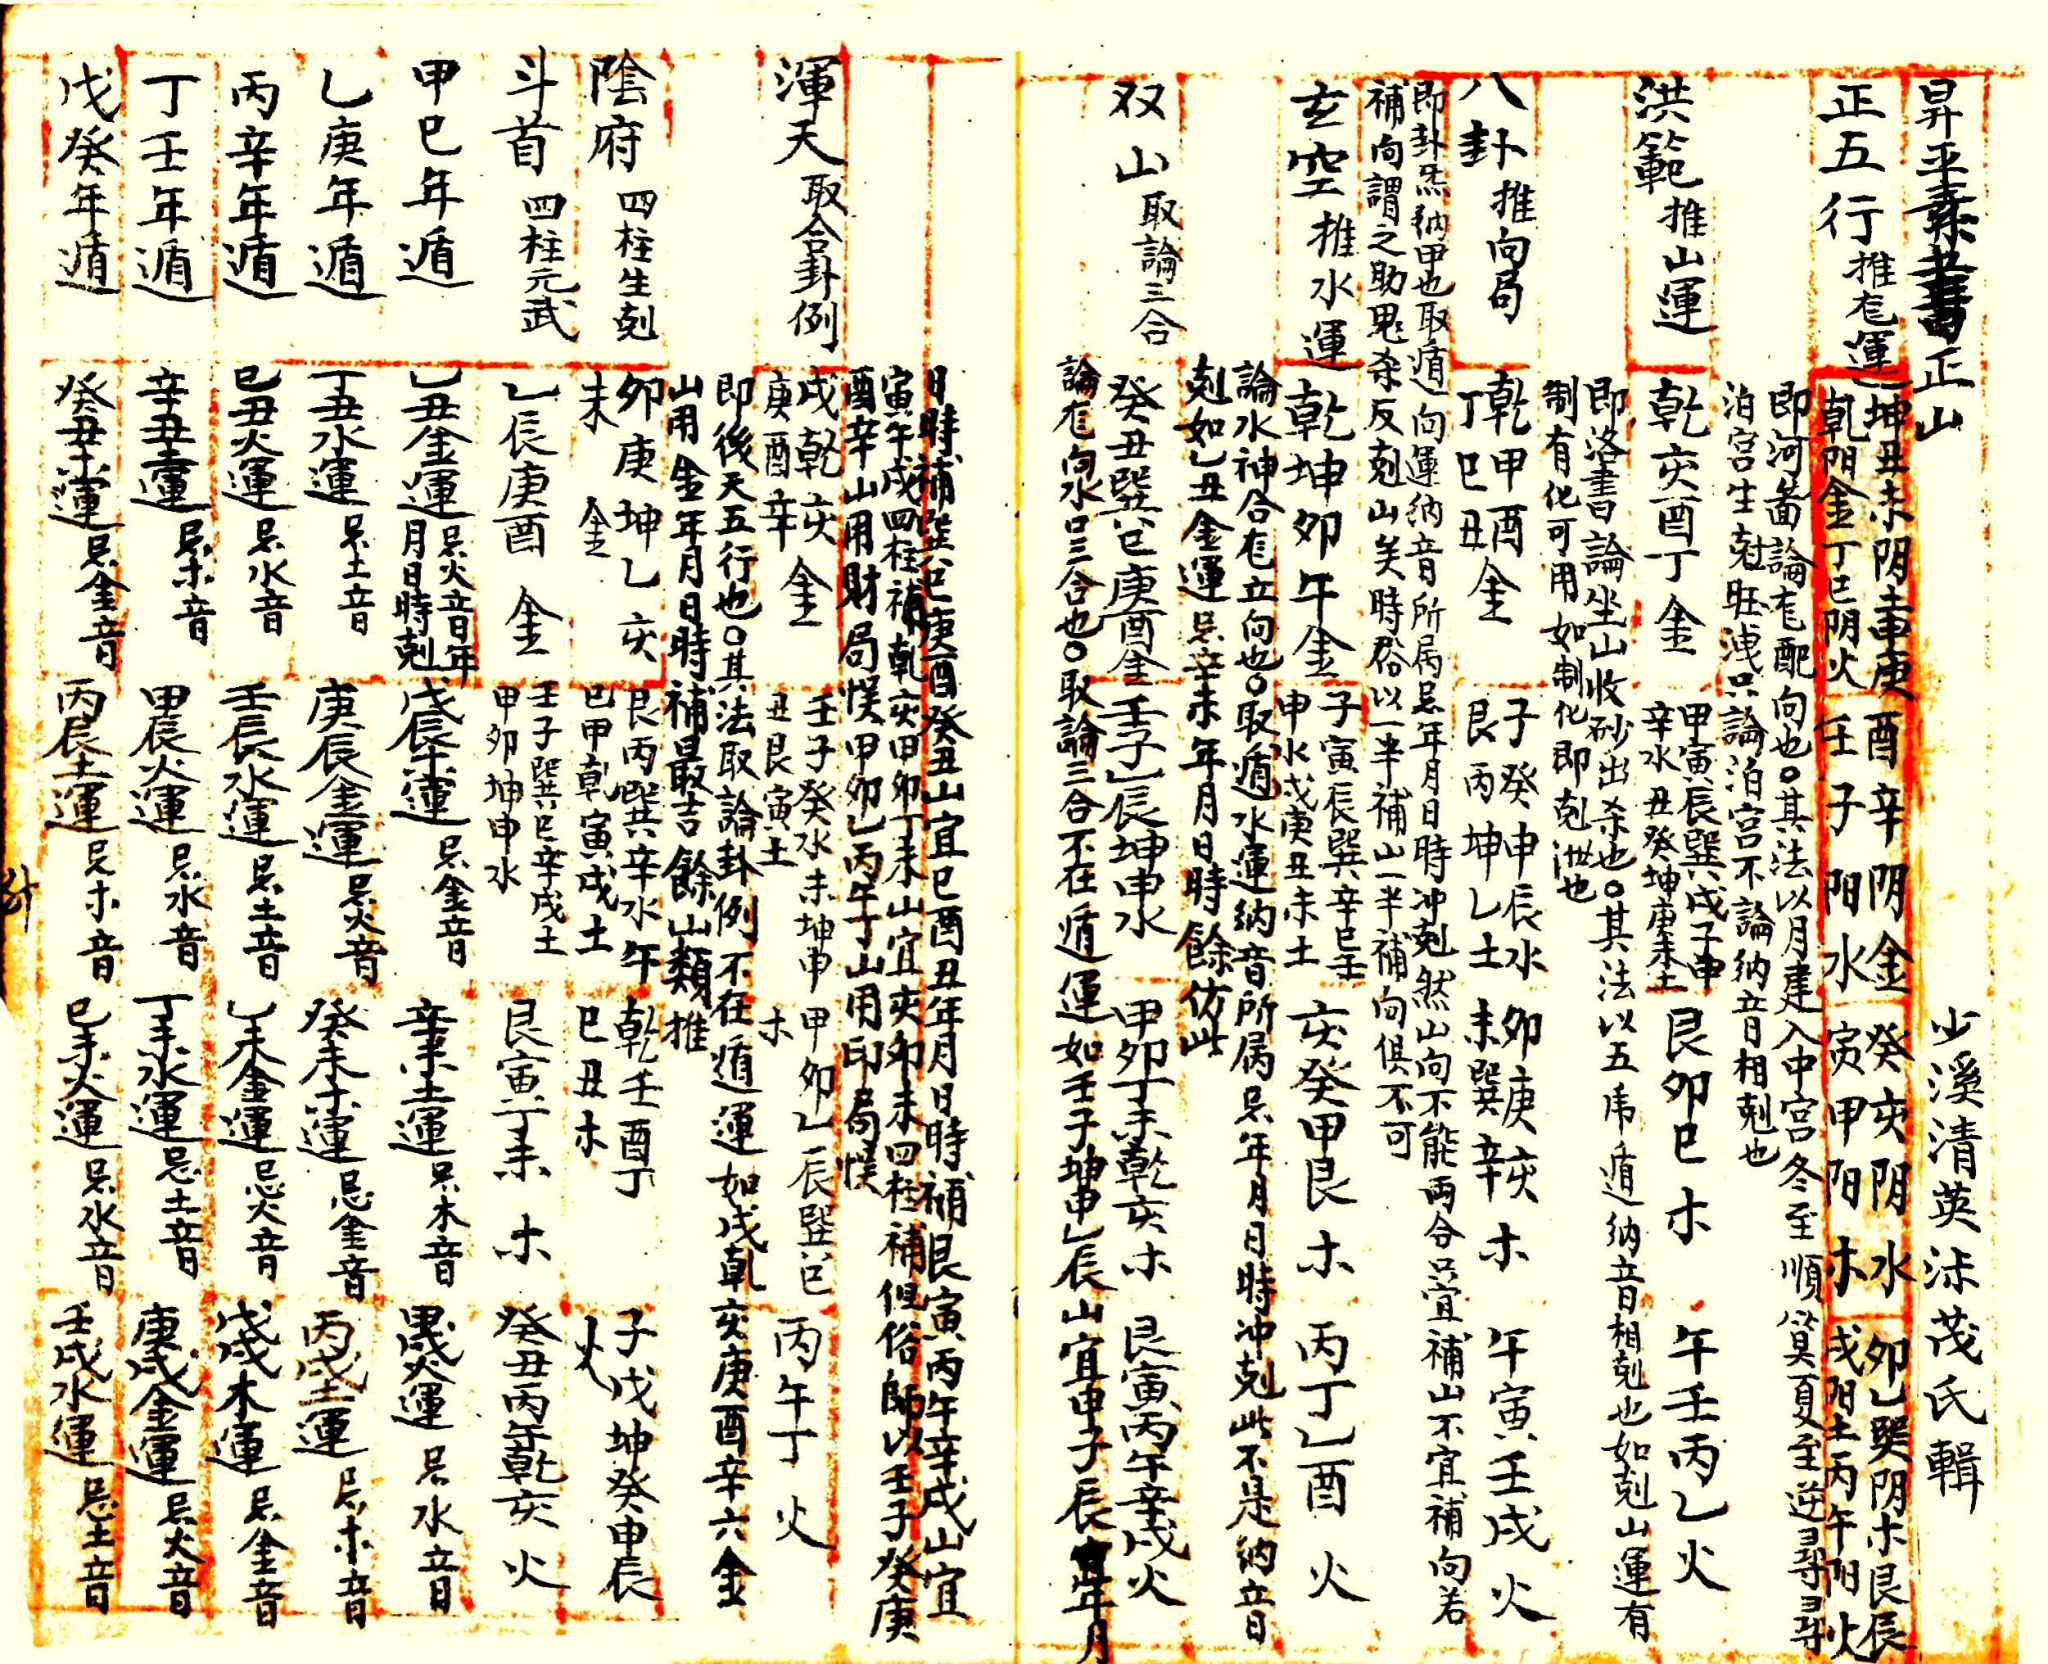 昇平秦書正山
少溪清英沭茂氏輯
正五行 推尨運
坤丑未阴土申庚酉辛阴金癸亥阴水卯乙巽阴木艮辰
乾阴金丁巳阴火壬子阳水寅甲阳木戌阳土丙午阳火
即河啚論尨配向也○其法以月建入中宮冬至順算夏至逆尋尋
泊宮生尅旺洩只論泊宮不論納音相剋也
洪範 推山運
乾亥酉丁金
甲寅辰巽戌子申
辛水丑癸坤庚未土
艮卯巳木
午壬丙乙火
即洛書論坐山收砂出杀也○其法以五虎遁納音相剋也如剋山運有
制有化可用如制化即剋泄也
八卦 推向局
乾甲酉金
丁巳丑
子癸申辰水
艮丙坤乙土
卯庚亥木
未巽辛
午寅壬戌火
即卦炁納甲也取遁向運納音所属忌年月日時冲剋然山向不能両合只宜補山不宜補向若
補向謂之助鬼杀反剋山矣時俗以一半補山一半補向俱不可
玄空 推水運
乾坤卯午金
子寅辰巽辛巳壬
申水戊庚丑未土
亥癸甲艮木
丙丁乙酉火
論水神合尨立向也○取遁水運納音所属忌年月日時冲剋此不是納音
剋如乙丑金運忌辛未年月日時餘仿此
双山 取論三合
癸丑巽巳庚酉金
壬子乙辰坤申水
甲卯丁未乾亥木
艮寅丙午辛戌火
論尨向水只三合也○取論三合不在遁運如壬子坤申乙辰山宜申子辰年月
日時補巽巳庚酉癸丑山宜巳酉丑年月日時補艮寅丙午辛戌山宜
寅午戌四柱補乾亥甲卯丁未山宜亥卯未四柱補但俗師以壬子癸庚
酉辛山用財局悞甲卯乙丙午丁山用印局悞
渾天 取合卦例
戌乾亥金
庚酉辛
壬子癸水未坤申
丑艮寅土
甲卯乙辰巽巳
木
丙午丁火
即後天五行也○其法取論卦例不在遁運如戌乾亥庚酉辛六金
山用金年月日時補最吉餘山類推
陰府 四柱生剋
卯庚坤乙亥
未金
艮丙巽辛水午
巳甲乾寅戌土
乾壬酉丁
巳丑木
子戊坤癸申辰
火
斗首 四柱元武
乙辰庚酉金
壬子巽巳辛戌土
甲卯坤申水
艮寅丁未木
癸丑丙午乾亥火
甲巳年遁
乙丑金運 忌火音年月日時剋
戊辰木運 忌金音
辛未土運 忌木音
甲戌火運 忌水音
乙庚年遁
丁丑水運 忌土音
庚辰金運 忌火音
癸未木運 忌金音
丙戌土運 忌木音
丙辛年遁
巳丑火運 忌水音
壬辰水運 忌土音
乙未金運 忌火音
戊戌木運 忌金音
丁壬年遁
辛丑土運 忌木音
甲辰火運 忌水音
丁未水運 忌土音
庚戌金運 忌火音
戊癸年遁
癸丑木運 忌金音
丙辰土運 忌木音
巳未火運 忌水音
壬戌水運 忌土音